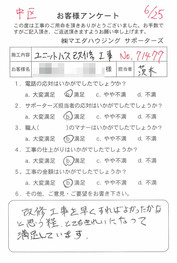 中区
6/25
お客様アンケート
この度は工事のご用命を頂きありがとうございました。お手数で
すがご記入頂き、ご返送頂きますようお願い申し上げます。
㈱マエダハウジング サポーターズ
工事内容 ユニットバス改修工事 No,71477
お客様名 様 担当者 茨木
1. 電話の応対はいかがでしたでしょうか?
a. 大変満足 b. 満足 c. やや不満 d. 不満
2. サポーターズ担当者の応対はいかがでしたでしょうか?
a. 大変満足 b. 満足 c. やや不満 d. 不満
3. 職人( )のマナーはいかがでしたでしょうか?
a. 大変満足 b. 満足 c. やや不満 d. 不満
4. 工事の仕上がりはいかがでしたでしょうか?
a. 大変満足 b. 満足 c. やや不満 d. 不満
5. 工事の金額はいかがでしたでしょうか?
a. 大変満足 b. 満足 c. やや不満 d. 不満
6. その他、ご意見・ご要望をお書き下さい。
改修工事を早くすればよかったな
と思う程、とてもきれいになって
満足しています。